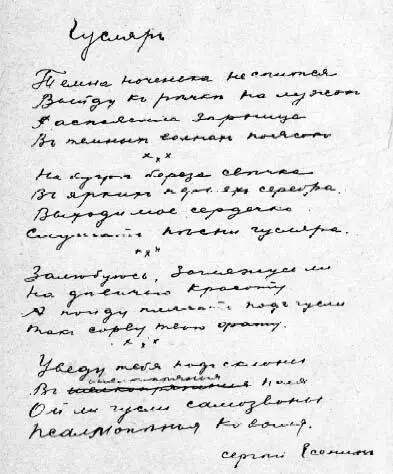 Гусляръ
Темна ноченька не спится
Выйду къ рѣчки на лужок
Распоясала зарница
Въ темных волнах поясок
x , x
На бугре береза свечка
Въ яркихъ перьяхъ серебра.
Выходи мое сердечко
Слушать песни гусляра.
x , x
Залюбуюсь, загляжусь ли
На девичью красоту
А пойду плясать подъ гусли
Такъ сорву твою фату.
x , x
Уведу тебя подъ склоны
Въ поля
Ой ли гусли самозвоны
Псалмопения ковыля.
Сергей Есенин